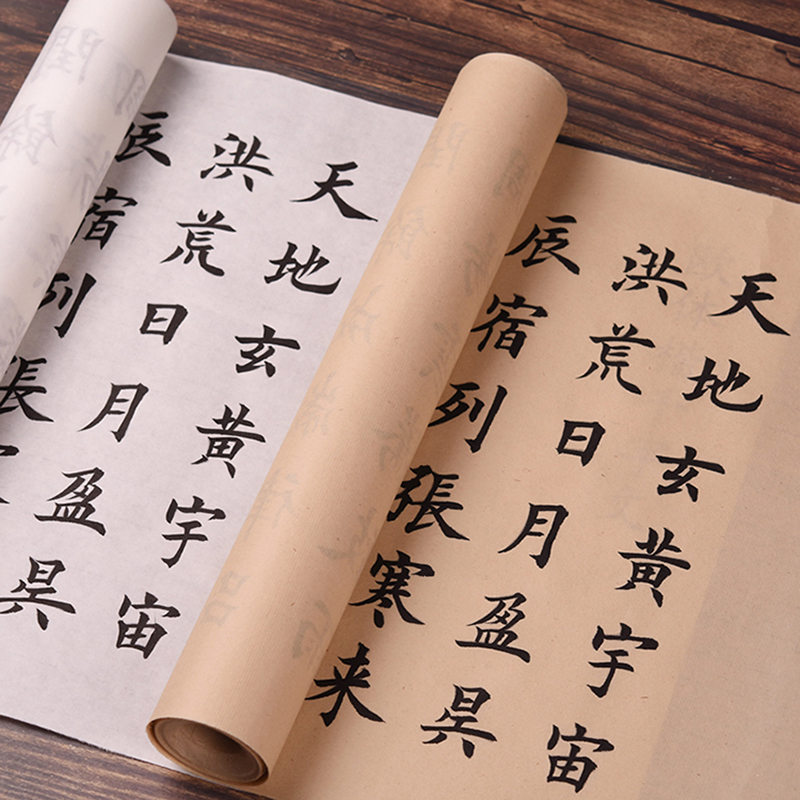 天地玄黄宇宙
洪荒日月盈昃
辰宿列張寒来
天地玄黄宇宙
洪荒日月盈昃
辰宿列張